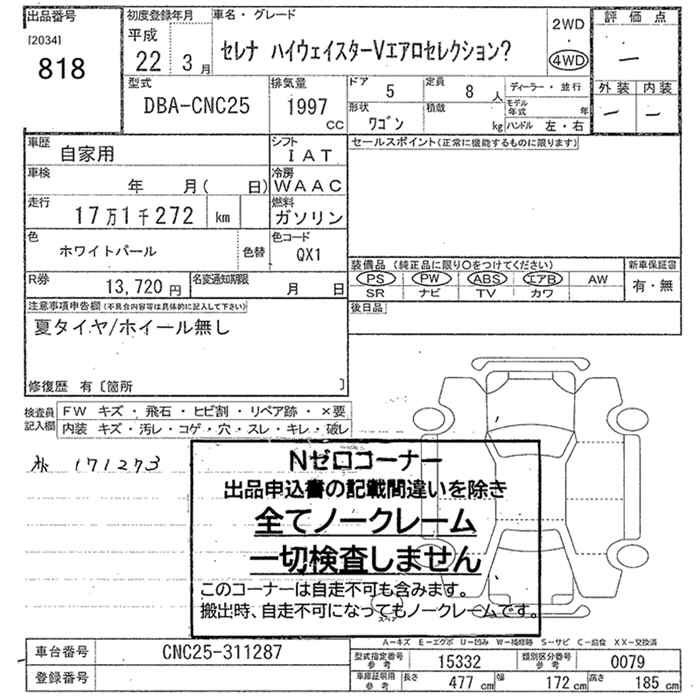 出品番号
[2034]
818
初度登録年月
平成
22 3月
車名・グレード
セレナ ハイウェイスターVエアロセレクション?
2WD
・
4WD
評価点
―
外装 内装
― ―
型式
DBA-CNC25
排気量
1997
CC
ドア
5
定員
8 人
形状
ワゴン
積載
kg
ディーラー・並行
モデル年式 年
ハンドル 左・右
車歴
自家用
シフト
IAT
車検
年 月( 日)
冷房
WAAC
走行
17万1千272 km
燃料
ガソリン
色
ホワイトパール
色替
色コード
QX1
R券
13,720円
名変通知期限
月 日
セールスポイント(正常に機能するものに限ります)
装備品(純正品に限り○をつけてください)
PS PW ABS エアB AW
SR ナビ TV カワ
新車保証書
有・無
後日品
注意事項申告欄(不具合内容等は具体的に記入して下さい)
夏タイヤ/ホイール無し
修復歴 有〔箇所 〕
検査員記入欄
FW キズ・飛石・ヒビ割・リペア跡・×要
内装 キズ・汚レ・コゲ・穴・スレ・キレ・破レ
171273
Nゼロコーナー
出品申込書の記載間違いを除き
全てノークレーム
一切検査しません
このコーナーは自走不可も含みます。
搬出時、自走不可になってもノークレームです。
スペア
A-キズ E-エクボ U-凹み W-補修跡 S-サビ C-腐食 XX-交換済
車台番号
CNC25-311287
登録番号
型式指定番号
参考
15332
類別区分番号
参考
0079
車庫証明用
参考
長さ 477 cm
幅 172 cm
高さ 185 cm